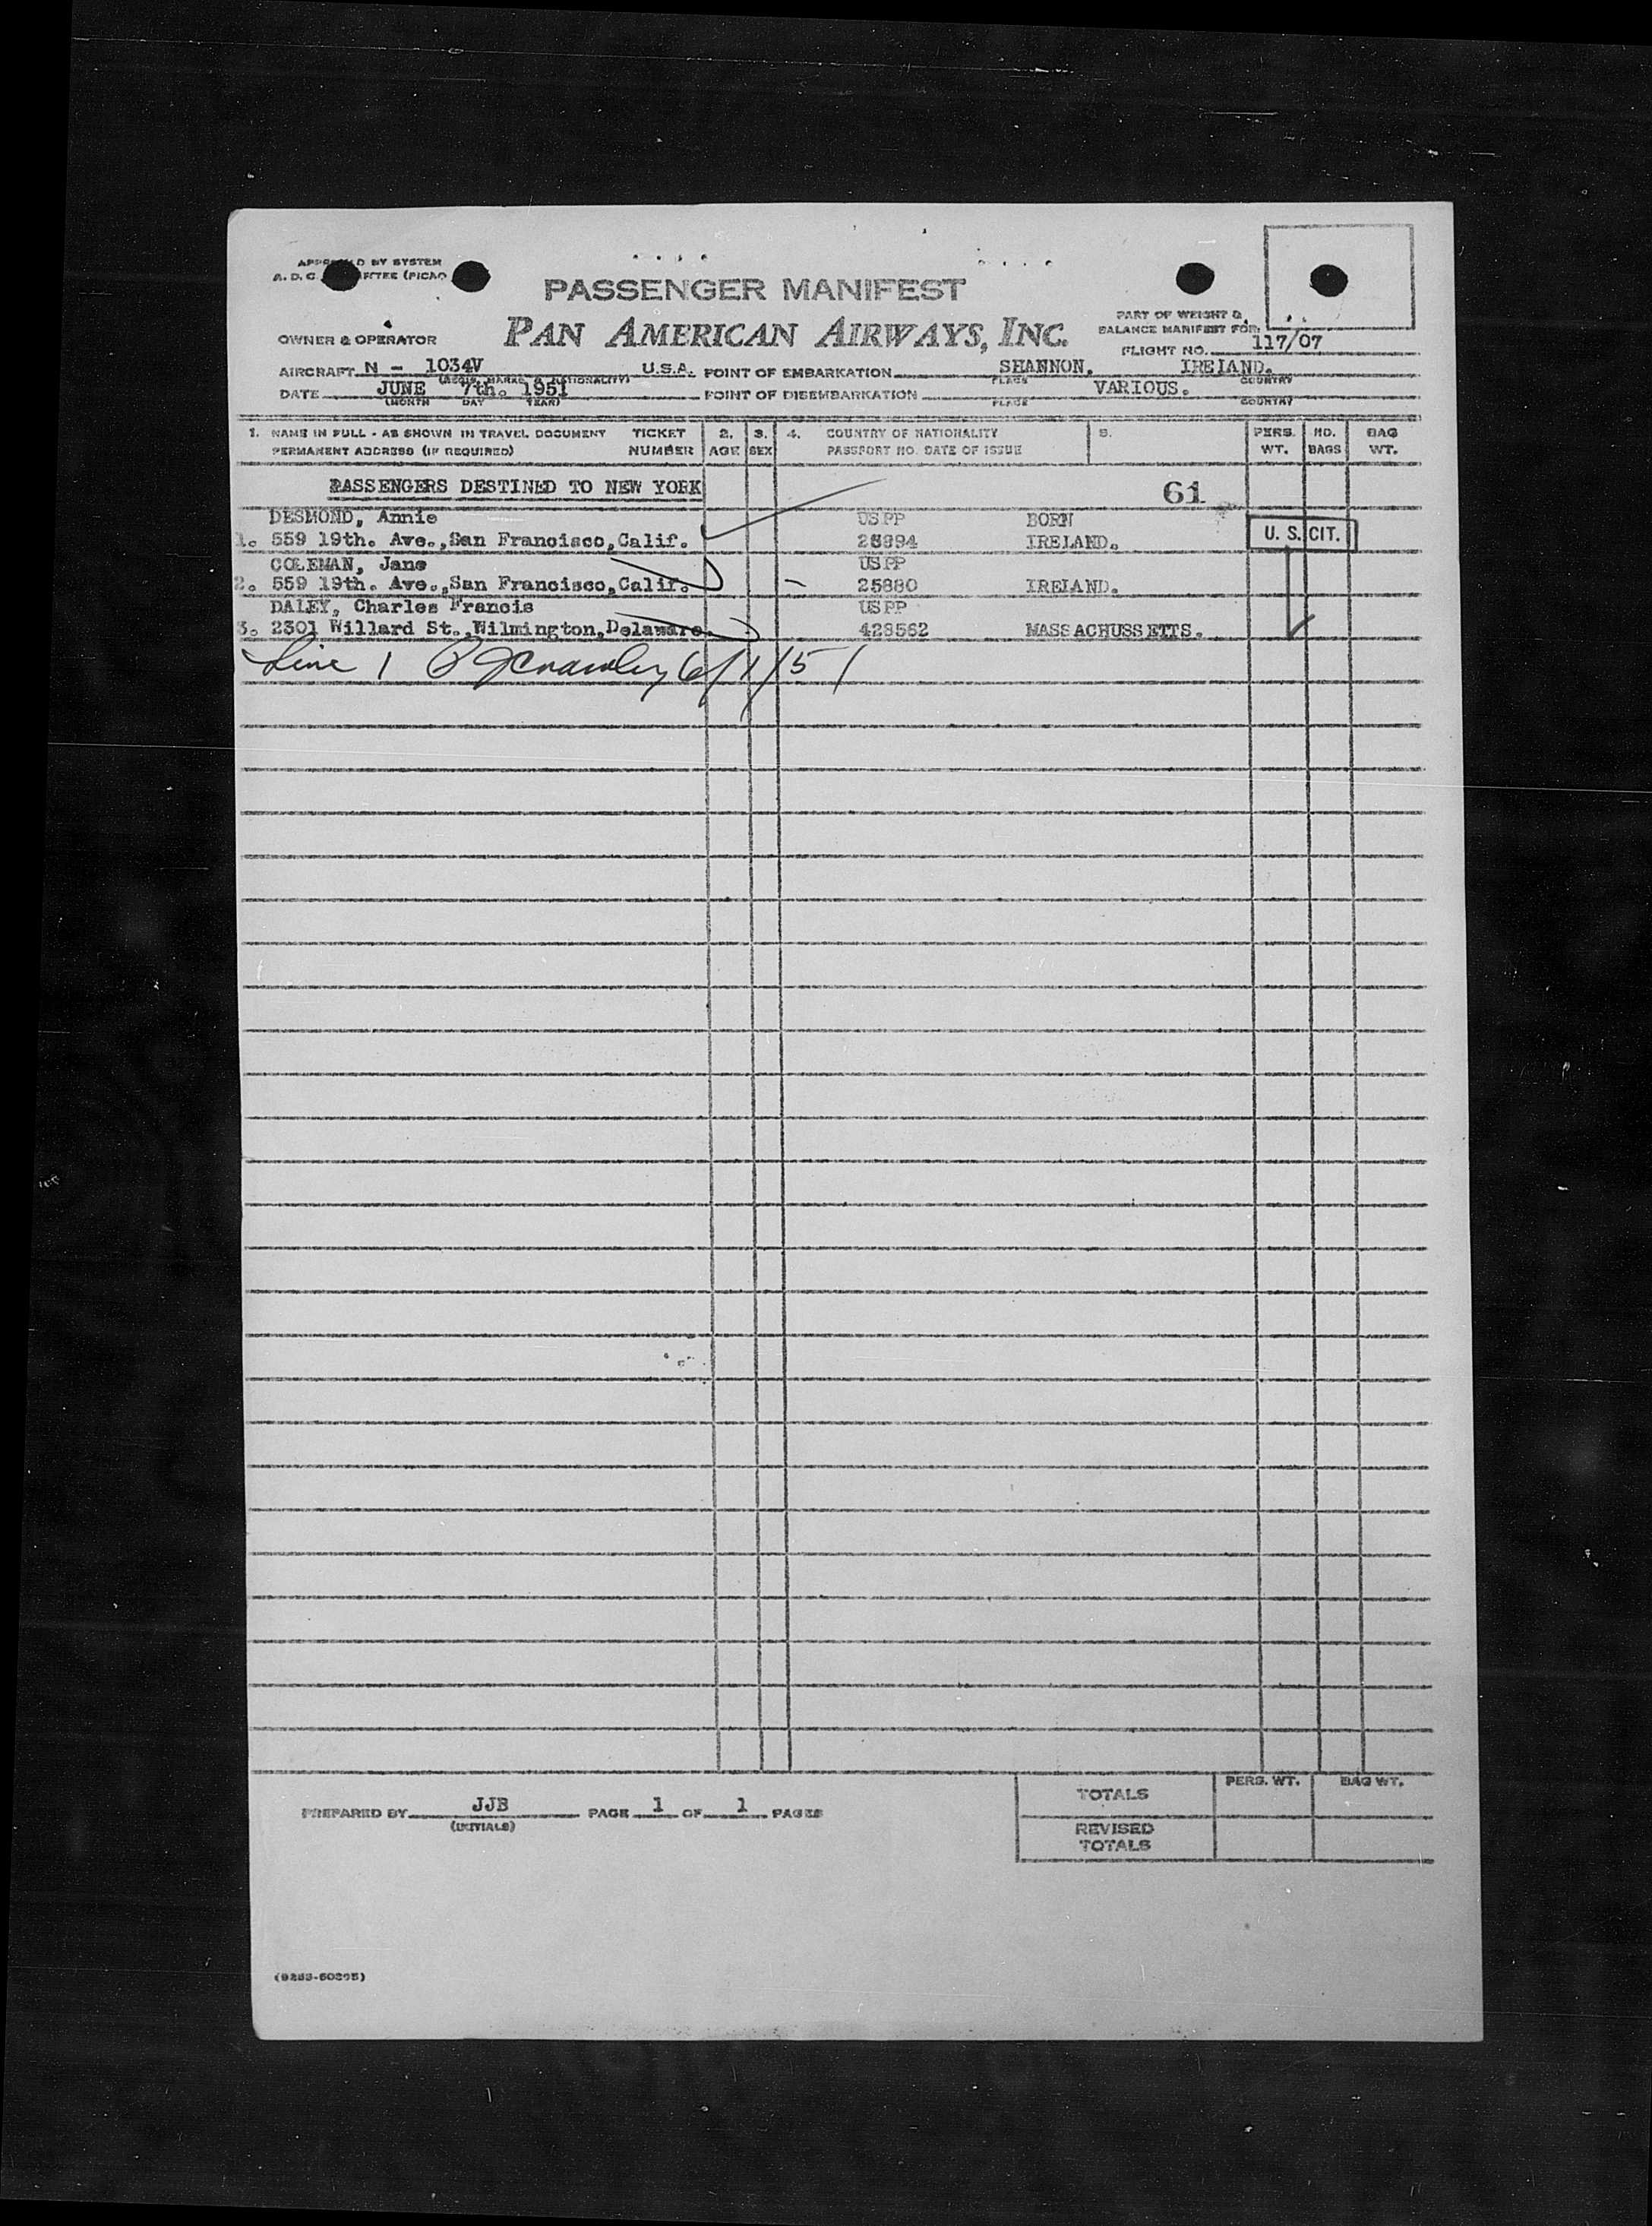 BY SYSTEM
A. D. C. (PICAO
PASSENGER MANIFEST
PAN AMERICAN AIRWAYS, INC.
PART OF WEIGHT &
BALANCE MANIFEST FOR
OWNER & OPERATOR
FLIGHT NO. 117/07
AIRCRAFT N - 1034V U.S.A. POINT OF EMBARKATION SHANNON, IRELAND.
(REGIS. MARKS & NATIONALITY) PLACE COUNTRY
DATE JUNE 7th. 1951 POINT OF DISEMBARKATION VARIOUS.
(MONTH DAY YEAR) PLACE COUNTRY
1. NAME IN FULL - AS SHOWN IN TRAVEL DOCUMENT TICKET 2. 3. 4. COUNTRY OF NATIONALITY 5. PERS. NO. BAG
PERMANENT ADDRESS (IF REQUIRED) NUMBER AGE SEX PASSPORT NO. DATE OF ISSUE WT. BAGS WT.
PASSENGERS DESTINED TO NEW YORK 61
DESMOND, Annie USPP BORN
1. 559 19th. Ave.,San Francisco,Calif. IRELAND. U. S. CIT.
COLEMAN, Jane USPP
2. 559 19th. Ave.,San Francisco,Calif. 25880 IRELAND.
DALEY, Charles Francis USPP
3. 2301 Willard St.,Wilmington,Delaware. 428562 MASSACHUSSETTS.
Line 1 6/7/51
TOTALS PERS. WT. BAG WT.
PREPARED BY JJB PAGE 1 OF 1 PAGES
(INITIALS)
REVISED
TOTALS